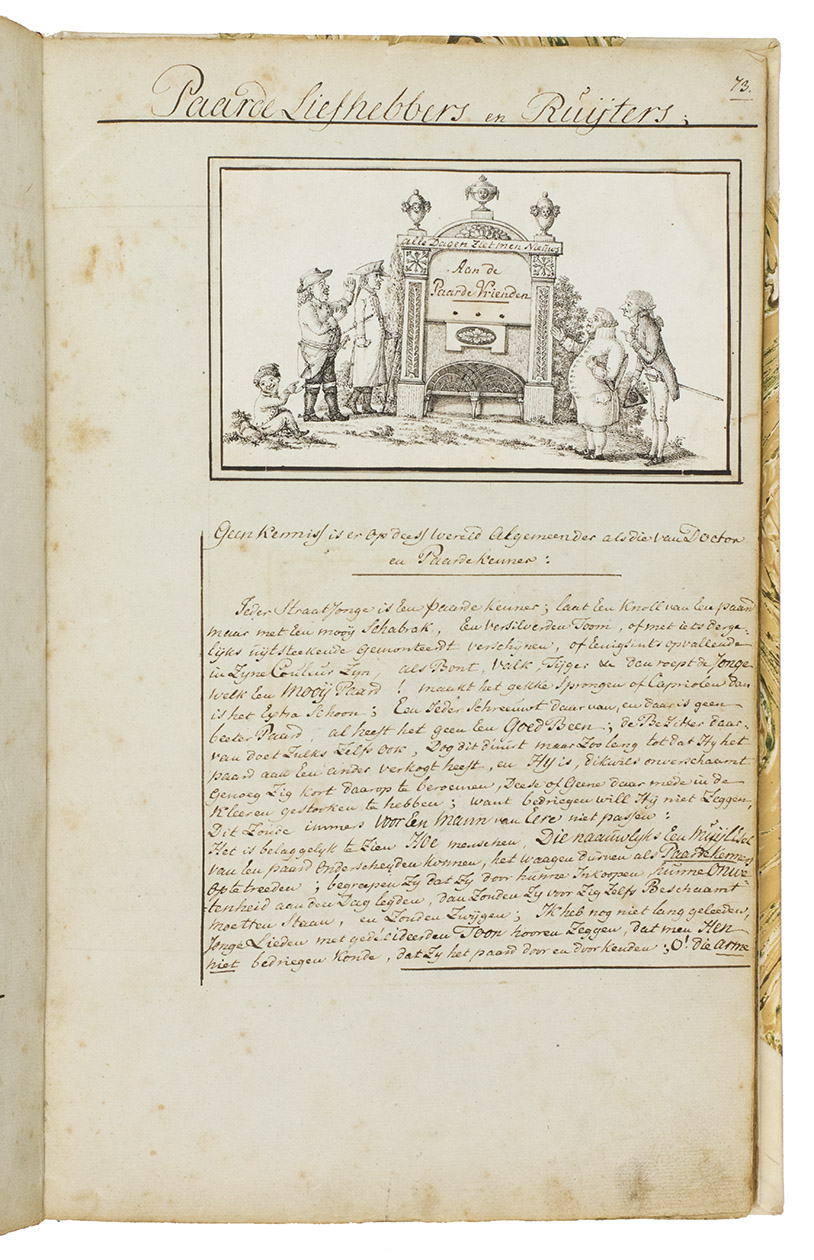 73.
Paarde Liefhebbers en Ruijters;
Alle Dagen Ziet men Nieuws
Aan de
Paarde Vrienden
Geen Kenniss is er op deess Wereld Algemeender als die van Doctor
en Paardekenner:
Ieder Straat Jonge is Een paarde kenner; laat Een Knoll van Een paard
maar met Een mooij Schabrak, En versilverden Toom, of met iets derge-
lijks uijtsteekende gemonteerdt verschijnen, of Eenigsints opvallende
in Zyne Couleur Zyn, als Bont, Valk, Tijger & dan roept de Jonge
welk Een Mooij Paard! maakt het gekke Sprongen of Capriolen dan
is het Extra Schoon; Een Ieder Schreeuwt daar van, en daar is geen
beeter Paard, al heeft het geen Een Goed Been; de Bezitter daar-
van doet Zulks Zelfs ook, Dog dit duurt maar Zoo lang tot dat Hy het
paard aan Een ander verkogt heeft, en Hy is, dikwils onverschaamt
Genoeg Zig kort daarop te beroemen, Deese of Geene daar mede in de
Kleeren gestooken te hebben; want bedriegen will Hij niet Zeggen,
Dit Zoude immers voor Een Mann van Eere niet passen:
Het is belaggelyk te Zien Hoe menschen, Die naauwlyks Een Muijl Esel
van Een paard Onderscheijden konnen, het waagen durven als Paardekenners
Op te treeden; begreepen Zy dat Zy door hunne Inkoopen hunne Onwe-
tenheid aan den Dag legden, dan Zouden Zy voor Zig Zelfs Beschaamt
moetten Staan, en Zouden Zwijgen; Ik heb nog niet lang geleeden,
Jonge Lieden met gedesideerden Toon hooren Zeggen, dat men Hen
niet bedriegen konde, dat Zy het paard door en door kenden; O! die arme